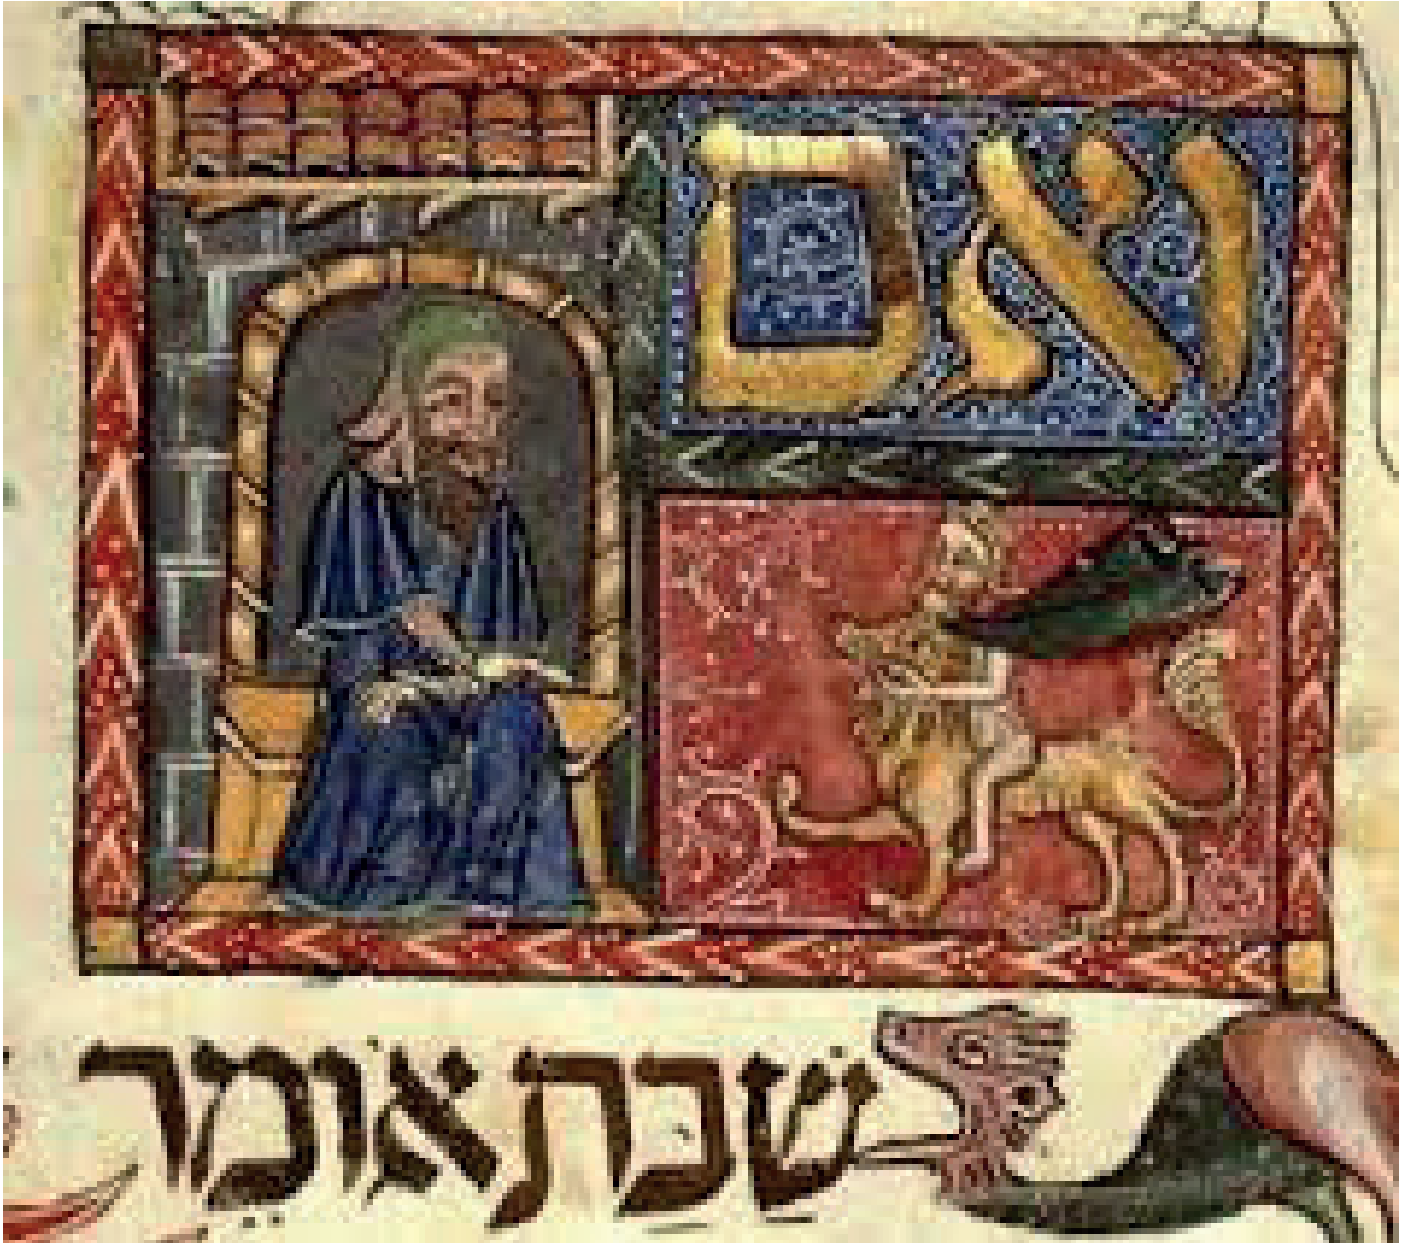 ואם
שַׁבָּת אוֹמֵר